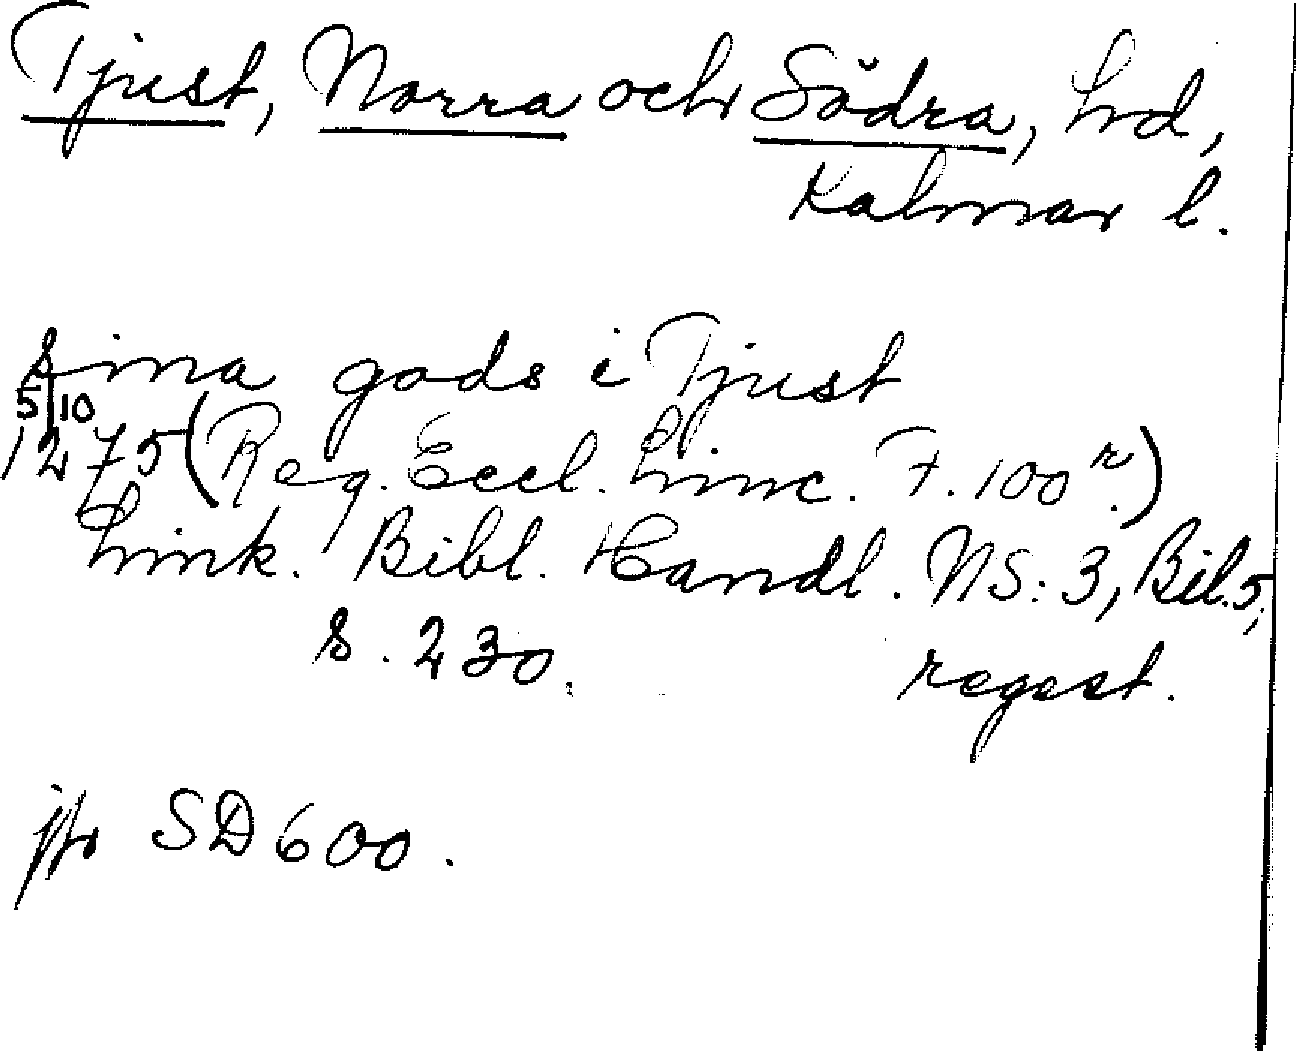 Tjust, Norra och Södra, hd,
Kalmar l.
sina gods i Tjust
5/10
1275 (Reg. Eccl. Linc. F. 100 r.)
Link. Bibl. Handl. NS: 3, Bil. 5,
s. 230. regest.
jfr SD 600.